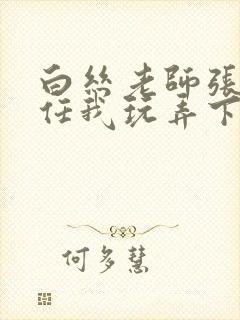 白絲老師張
任我玩弄下
何多慧